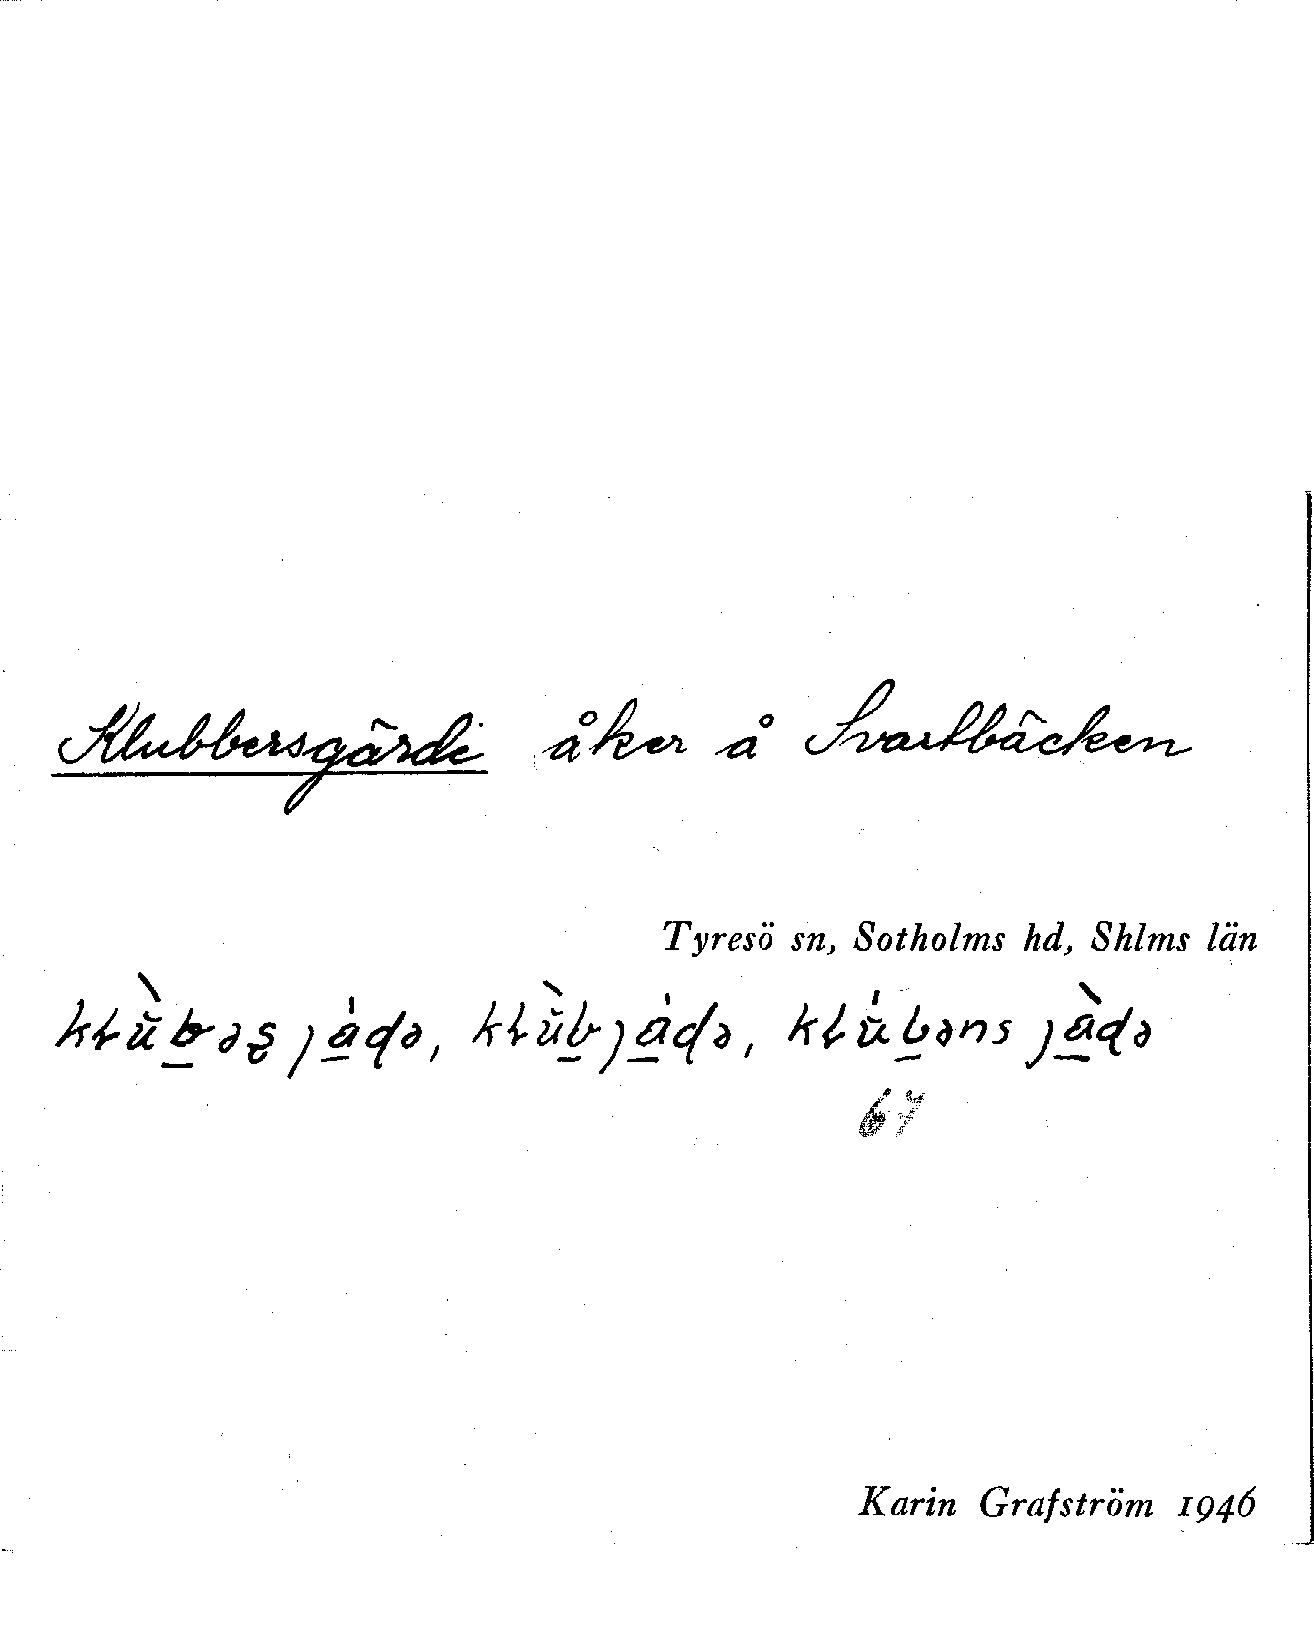 Klubbersgärde åker å Svartbäcken
Tyresö sn, Sotholms hd, Shlms län
kłùbəş ȷàɖə, kłùbȷàɖə, kłúbəns ȷàɖə
67
Karin Grafström 1946